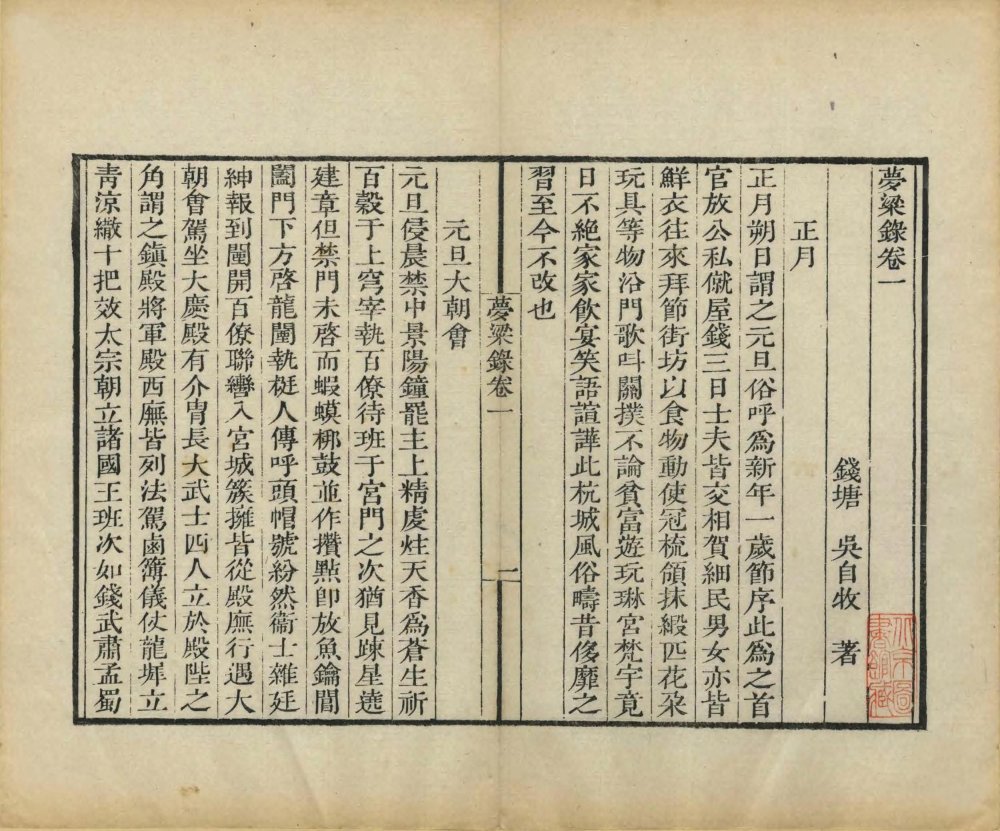 夢粱錄卷一
錢塘 吳自牧 著
正月
正月朔日謂之元旦俗呼爲新年一歲節序此爲之首
官放公私僦屋錢三日士夫皆交相賀細民男女亦皆
鮮衣往來拜節街坊以食物動使冠梳領抹緞匹花朶
玩具等物沿門歌呌關撲不論貧富遊玩琳宮梵宇竟
日不絕家家飲宴笑語諠譁此杭城風俗疇昔侈靡之
習至今不改也
夢粱錄卷一
一
元旦大朝會
元旦侵晨禁中景陽鐘罷主上精虔炷天香爲蒼生祈
百穀于上穹宰執百僚待班于宮門之次猶見踈星遶
建章但禁門未啓而蝦蟆梆鼓並作攢㸃卽放魚鑰閶
闔門下方啓龍闈執梃人傳呼頭帽號紛然衞士雜廷
紳報到闈開百僚聯轡入宮城簇擁皆從殿廡行遇大
朝會駕坐大慶殿有介胄長大武士四人立於殿陛之
角謂之鎭殿將軍殿西廡皆列法駕鹵簿儀仗龍墀立
靑涼繖十把效太宗朝立諸國王班次如錢武肅孟蜀